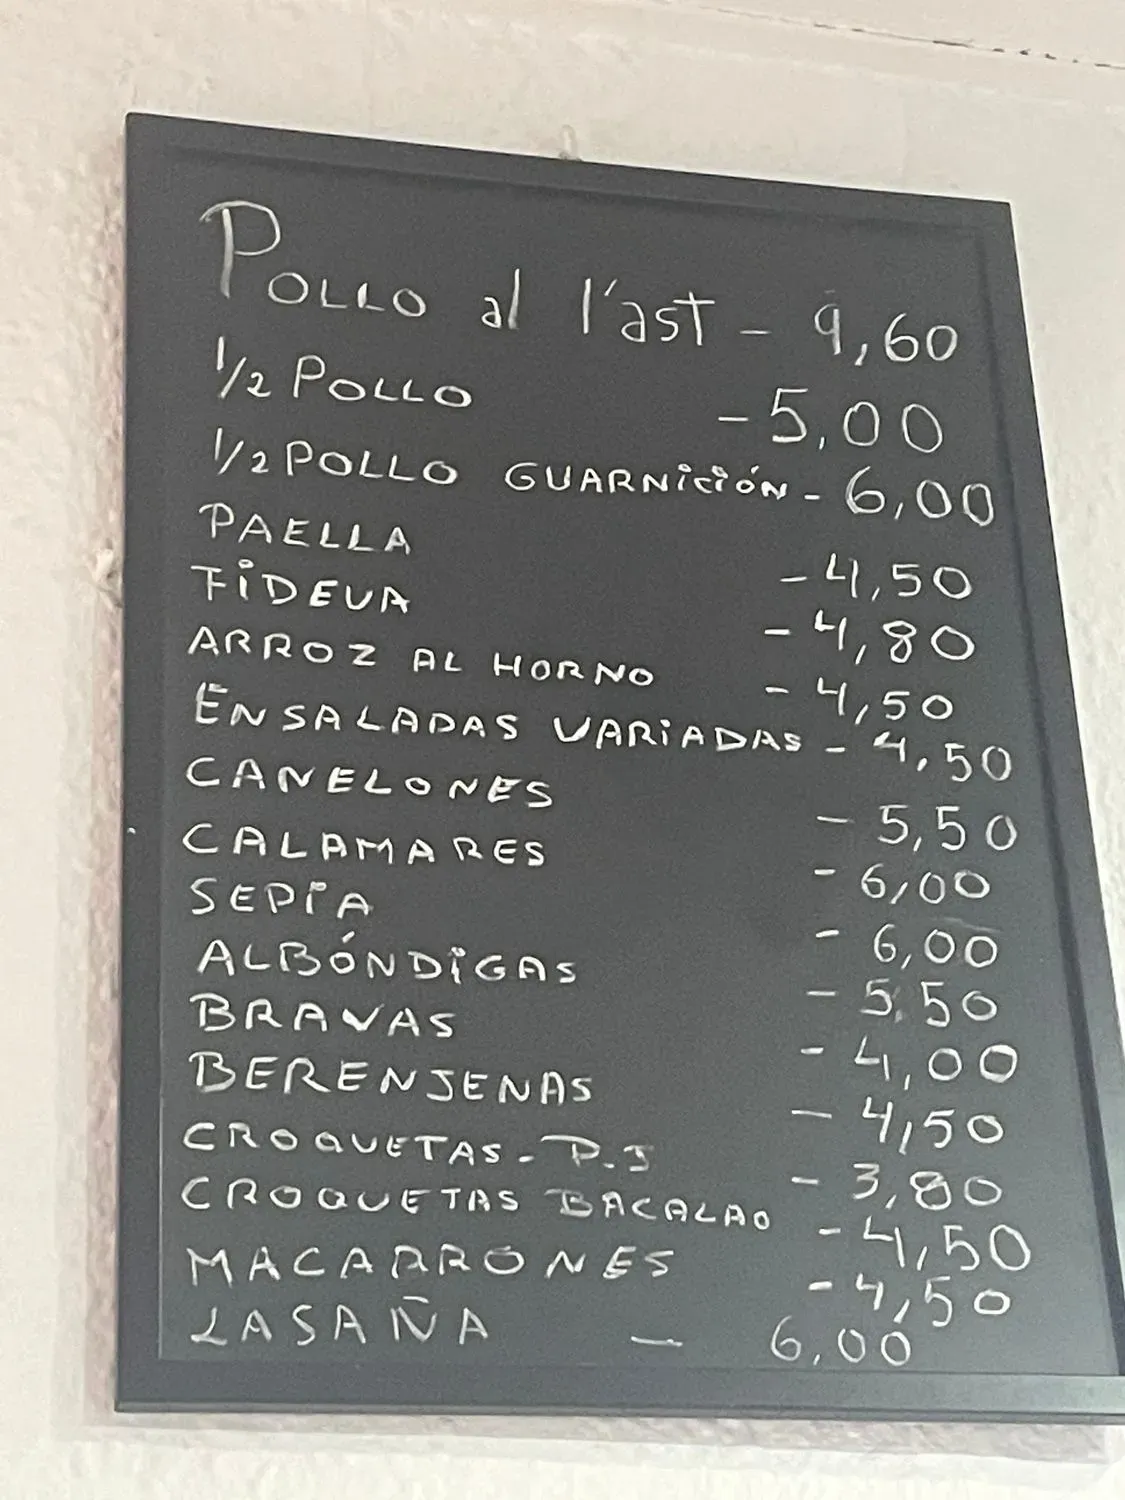 POLLO al l'ast - 9,60
1/2 POLLO - 5,00
1/2 POLLO GUARNICIÓN - 6,00
PAELLA - 4,50
FIDEUA - 4,80
ARROZ AL HORNO - 4,50
ENSALADAS VARIADAS - 4,50
CANELONES - 5,50
CALAMARES - 6,00
SEPIA - 6,00
ALBÓNDIGAS - 5,50
BRAVAS - 4,00
BERENJENAS - 4,50
CROQUETAS - P.J - 3,80
CROQUETAS BACALAO - 4,50
MACARRONES - 4,50
LASAÑA - 6,00